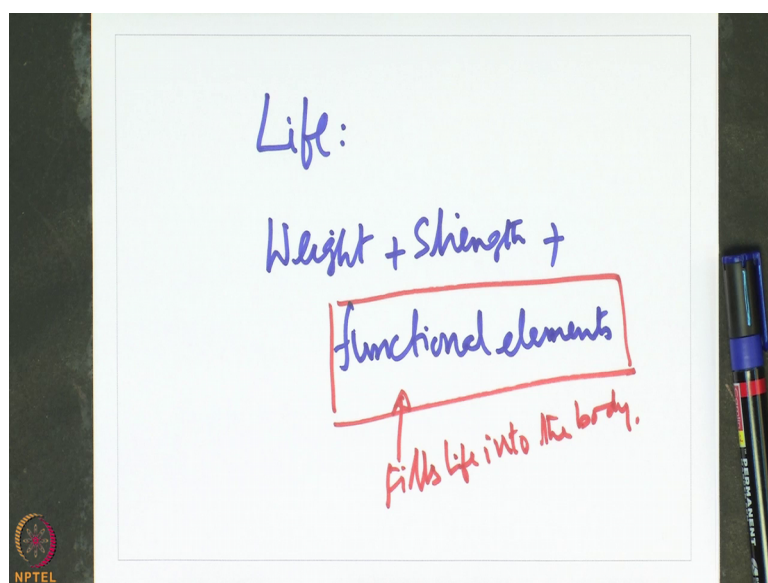 Life:
Weight + Strength +
functional elements
Fills life into the body.
PERMANENT
NPTEL